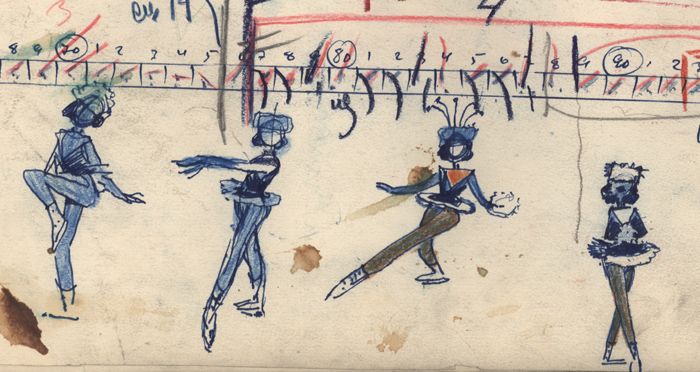 3 4
8 9 70 1 2 3 4 5 6 7 8 9 80 1 2 3 4 5 6 8 9 90 1 2